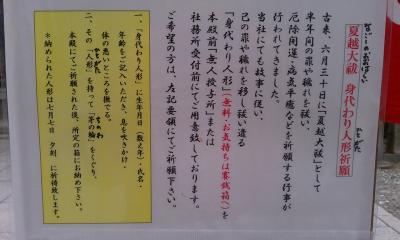 なごしのおおはらい
夏越大祓 身代わり人形祈願
ひとがた
古来、六月三十日に「夏越大祓」として
半年間の罪や穢れを祓い、
厄除開運・病気平癒などを祈願する行事が
行われてきました。
当社にても故事に従い、
己の罪や穢れを移し祓い遣る
「身代わり人形」(無料・お気持ちは賽銭箱)を
本殿前「無人授与所」または
社務所受付前にてご用意致しております。
ご希望の方は、左記要領にてご祈願下さい。
一、「身代わり人形」に生年月日(数え年)・氏名・
年齢をご記入いただき、息を吹きかけ・
体の悪いところを撫でる。
ひとがた
ちのわ
二、その「人形」を持って「茅の輪」をくぐり、
本殿にてご祈願された後、所定の箱にお納め下さい。
*納められた人形は七月七日 夕刻、に祈祷致します。